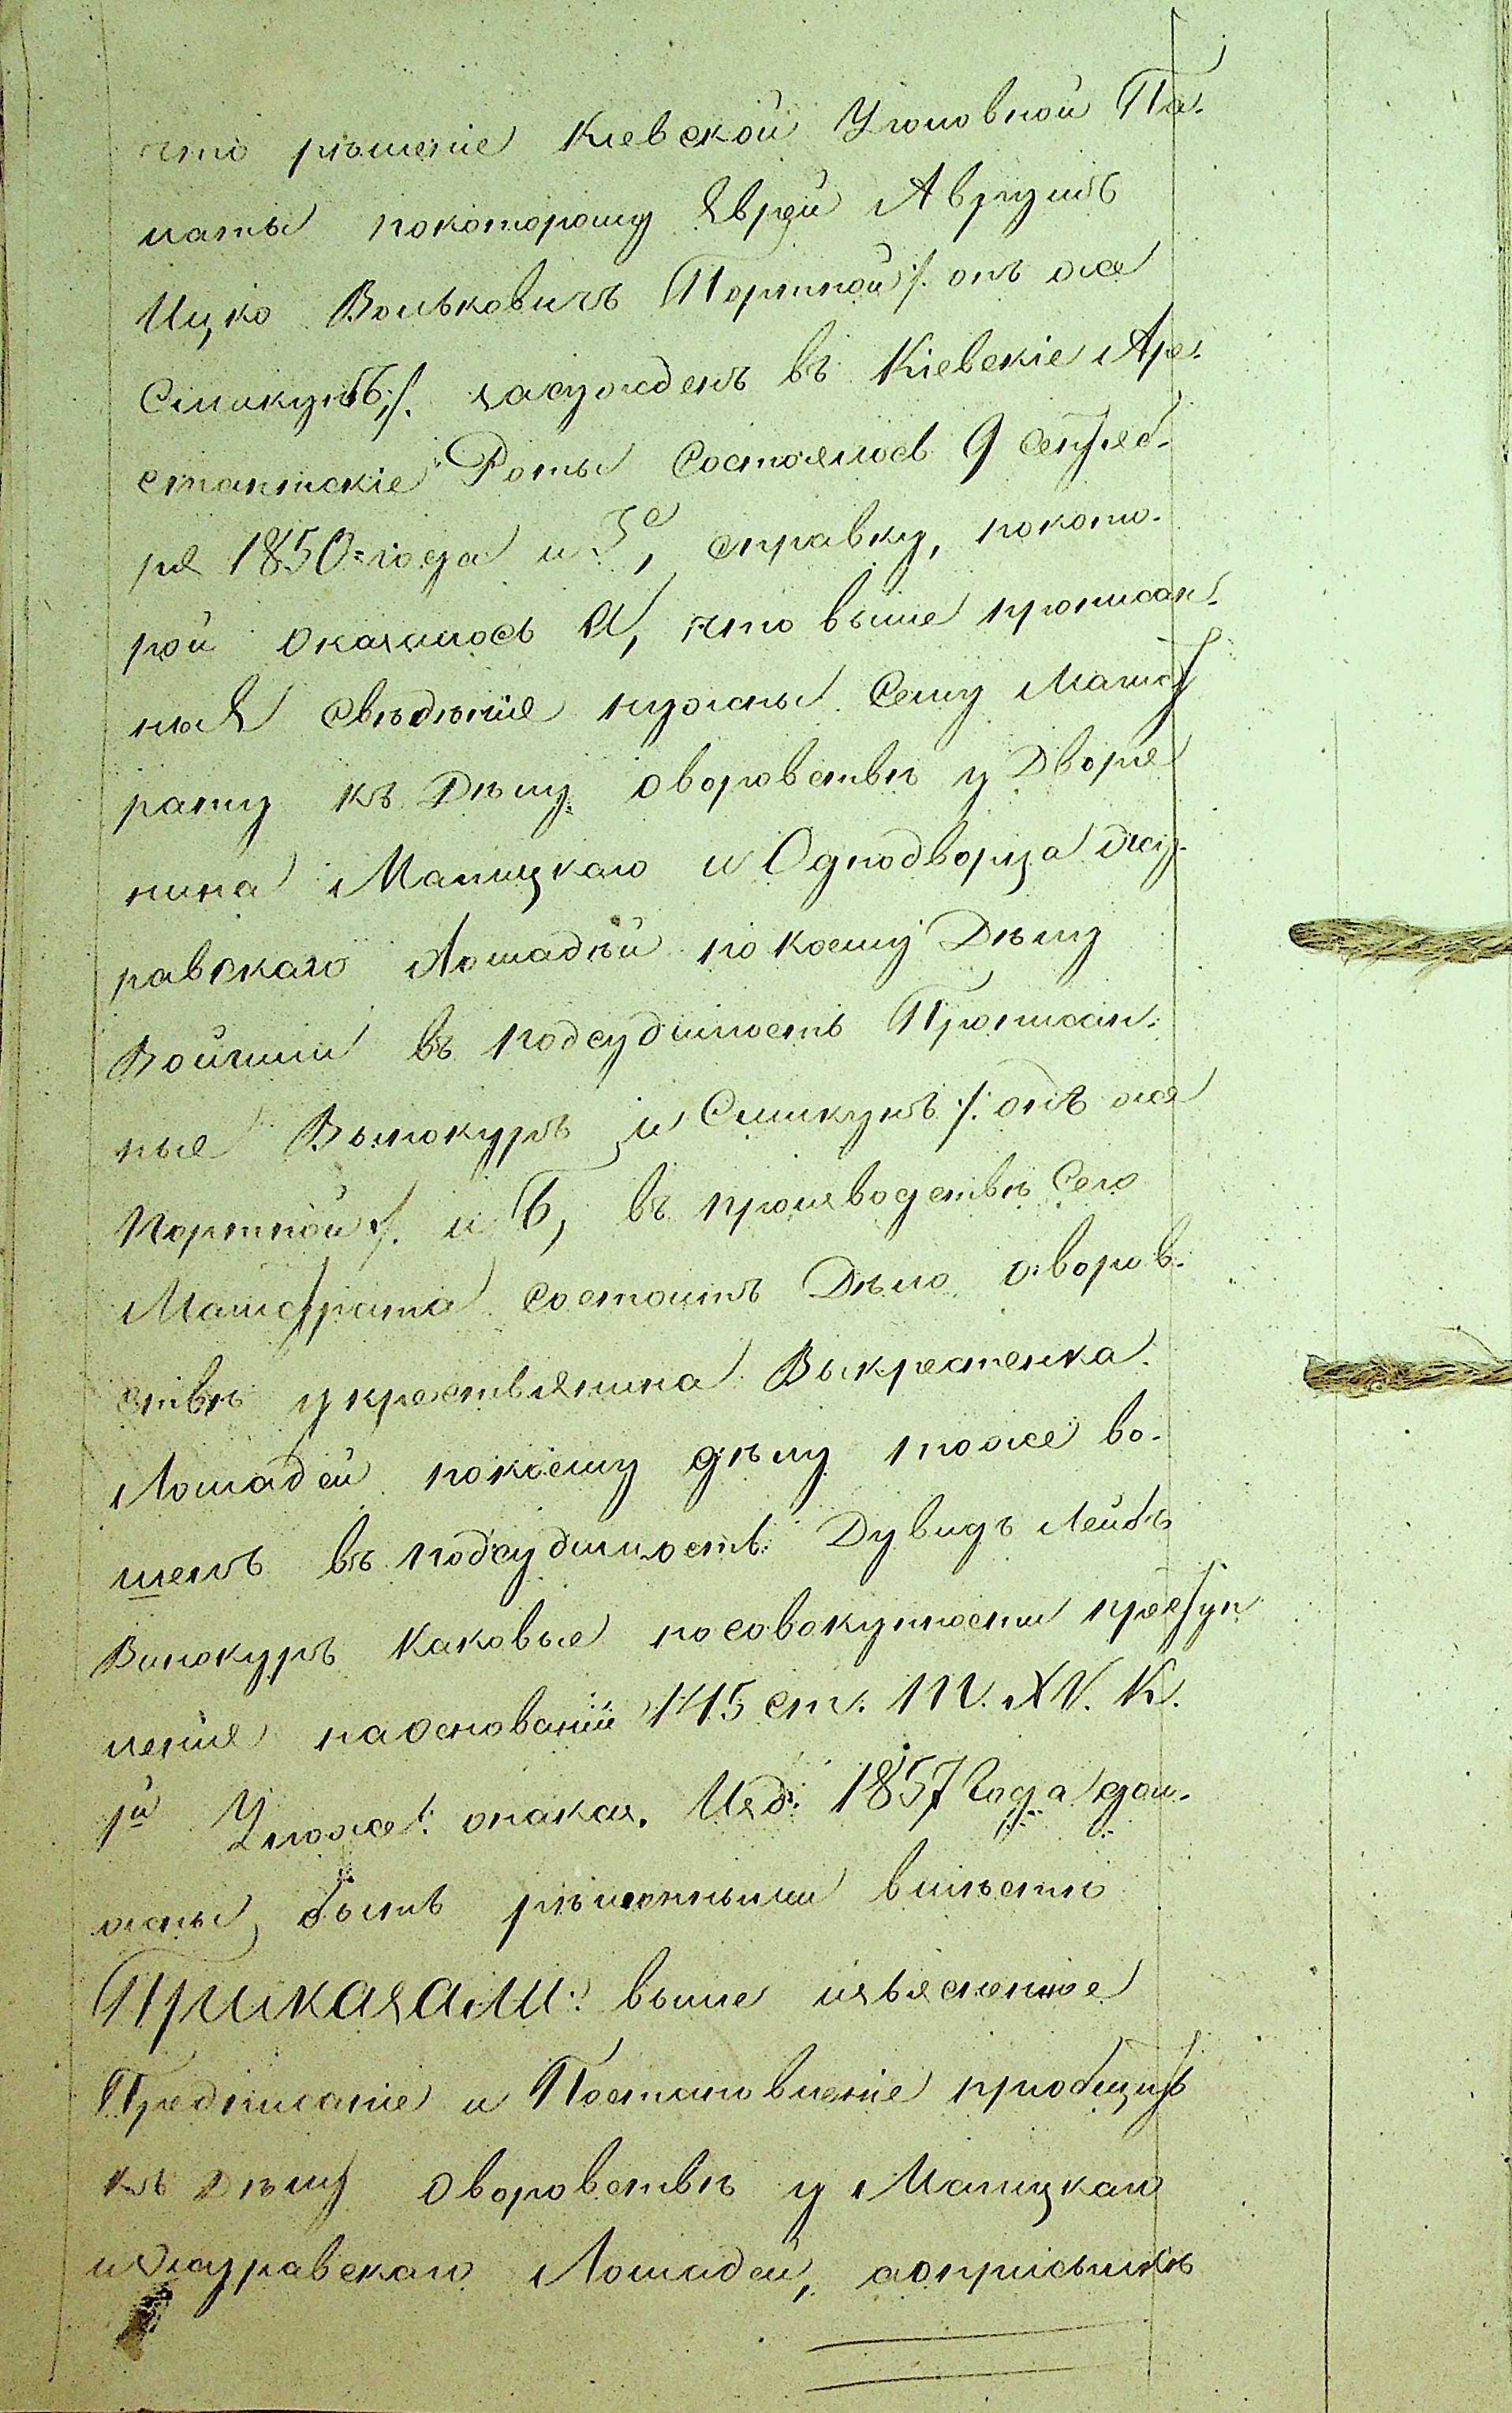 что рѣшеніе Кіевской Уголовной Па-
латы покоторому Еврей Аврумъ
Ицко Вольковичъ Портной /: онъ же
Симкунъ :/ засужденъ въ Кіевскіе Аре-
стантскіе Роты Состоялось 9 сентяб-
ря 1850 = года и 3е, справку, покото-
рой Оказалось А, что выше прописан-
ныя свѣдѣнія нужны Сему Магист
рату къ Дѣлу оворовствѣ у Дворя
нина Малицкаго и Однодворца Жу-
равскаго Лошадѣй по коему Дѣлу
Войшли въ подсудимость Прописан-
ные Винокуръ и Симкунъ /: онъ же
Портной :/ и Б, въ производствѣ Сего
Магистрата состоитъ Дѣло оворов-
ствѣ укрестьянина Выкрестенка
Лошадей покоему дѣлу тоже во-
шелъ въ подсудимость Дувидъ Лейбъ
Винокуръ Каковые посовокупности преступ
ленія наоснованіи 145 ст. Т. XV. К.
1й Улож: онаказ. Изд: 1857 Года дол-
жны быть рѣшенными вмѣстѣ
Приказали: выше изъясненное
Предписаніе и Постановленіе пріобщить
къ Дѣлу оворовствѣ у Малицкаго
и Журавскаго Лошадей,